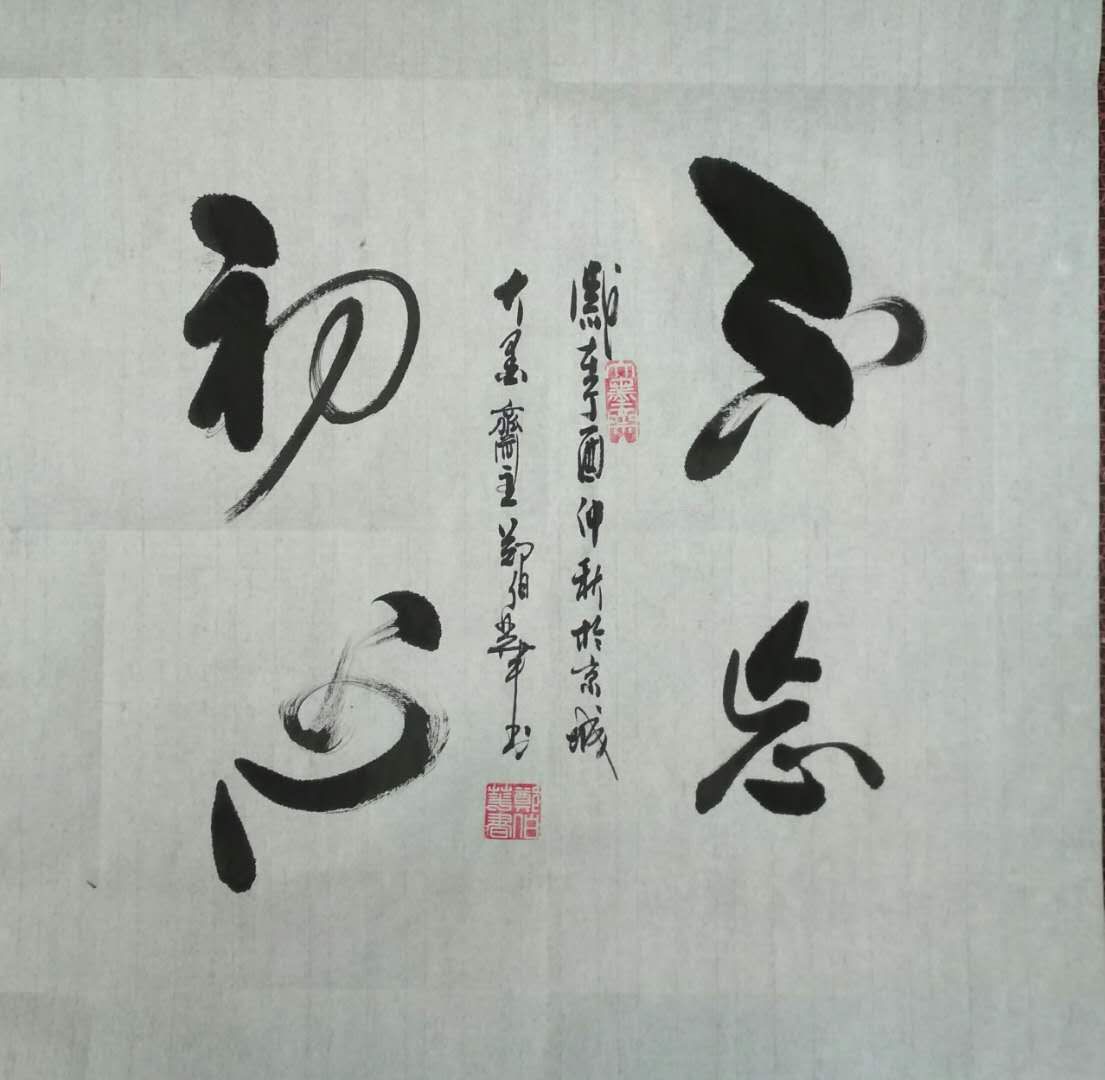 不忘
歲在丁酉仲秋於京城
大墨齋
大墨齋主鄭伯書
鄭伯書
初心